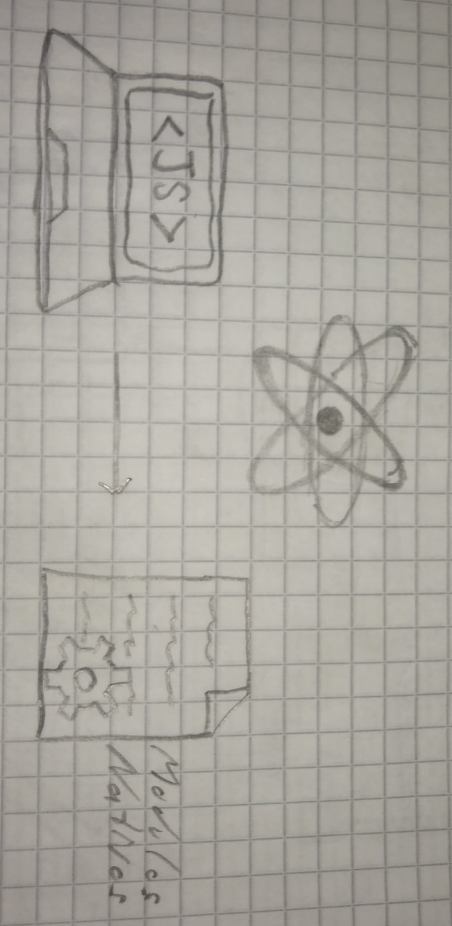 <JS>
Modulos
Nativos